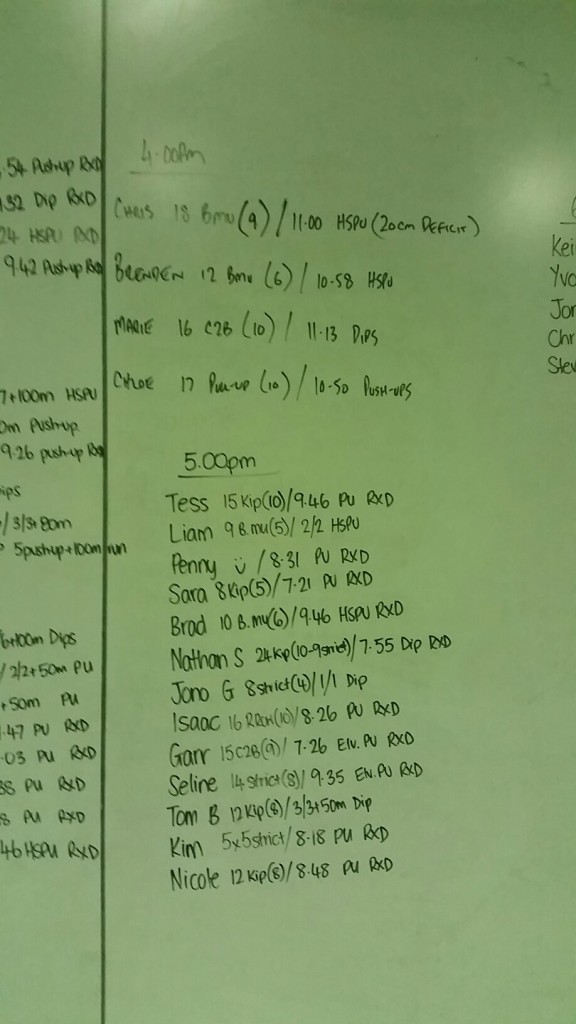 54 Pushup RXD
32 Dip RXD
24 HSPU RXD
9.42 Pushup RXD
7+100m HSPU
0m Pushup
9.26 pushup RXD
ips
/3/3+80m
5pushup+100m run
6+100m Dips
/2/2+50m PU
+50m PU
.47 PU RXD
.03 PU RXD
38 PU RXD
8 PU RXD
46 HSPU RXD
4.00pm
CHRIS 18 Bmu (9) / 11.00 HSPU (20cm DEFICIT)
BRENDEN 12 Bmu (6) / 10.58 HSPU
MARIE 16 C2B (10) / 11.13 DIPS
CHLOE 17 Pull-up (10) / 10.50 PUSH-UPS
5.00pm
Tess 15 Kip(10)/9.46 PU RXD
Liam 9 B.mu(5)/ 2/2 HSPU
Penny /8.31 PU RXD
Sara 8Kip(5)/7.21 PU RXD
Brad 10 B.mu(6)/9.46 HSPU RXD
Nathan S 24Kip(10-9strict)/7.55 Dip RXD
Jono G 8strict(4)/1/1 Dip
Isaac 16 (10)/ 8.26 PU RXD
Garr 15C2B(9)/ 7.26 Elv.PU RXD
Seline 14strict(8)/ 9.35 Elv.PU RXD
Tom B 12Kip(8)/3/3+50m Dip
Kim 5x5strict/ 8.18 PU RXD
Nicole 12 Kip(8)/ 8.48 PU RXD
6
Kei
Yvo
Jon
Chr
Stev